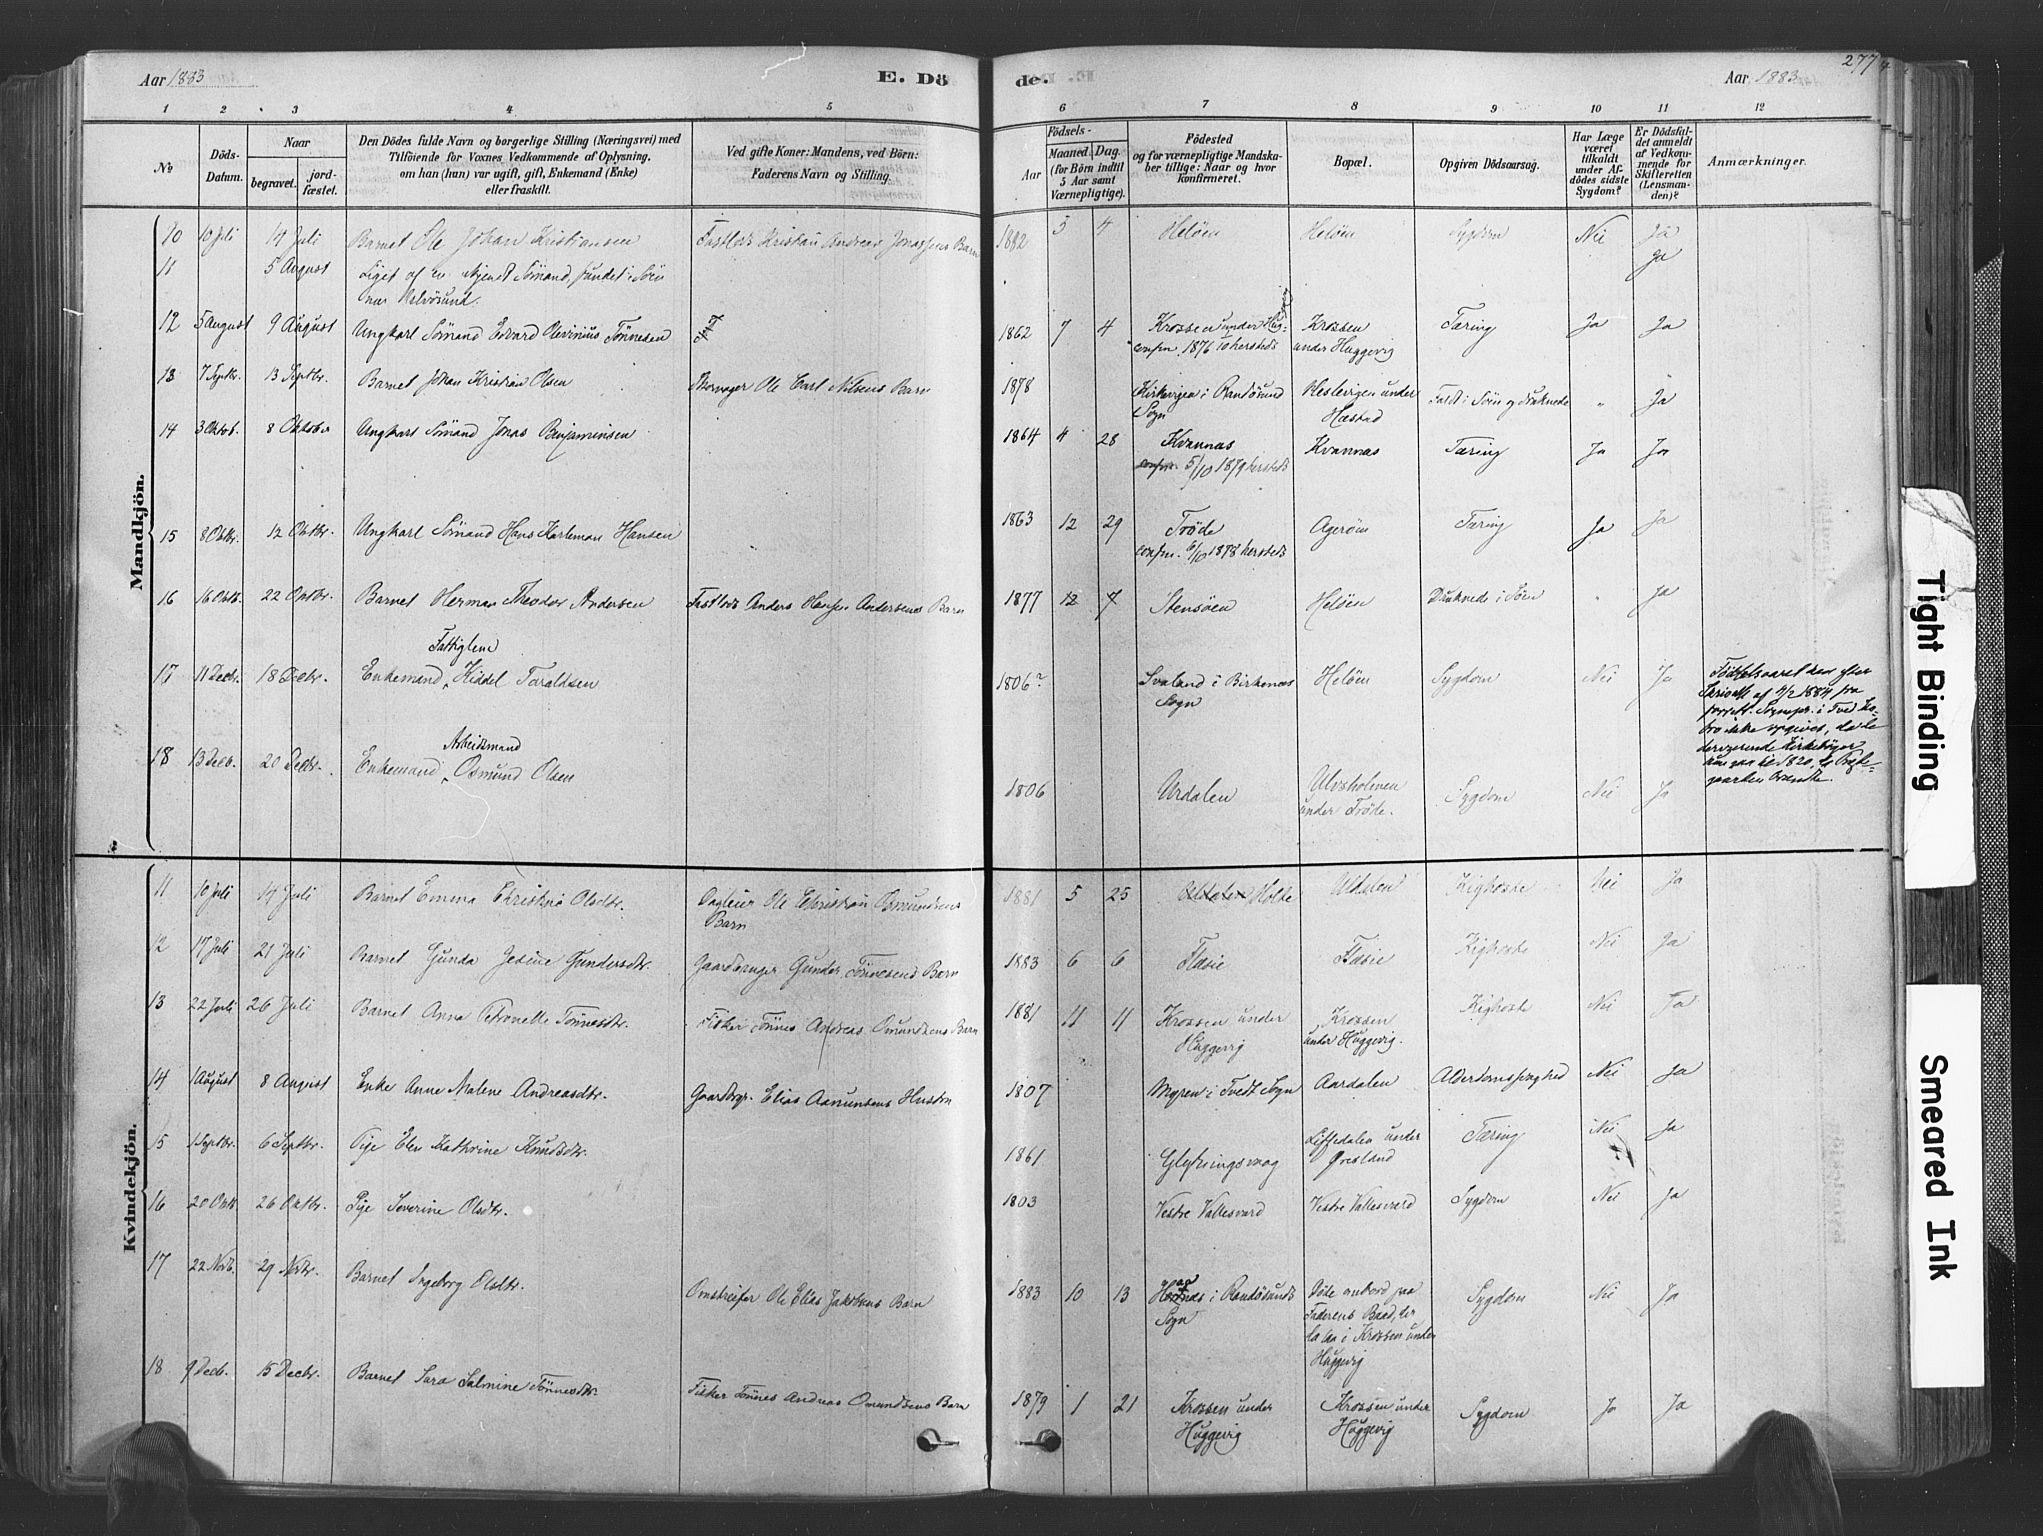 Aar 1883
E. Dö
de.
Aar 1883.
277
1 2 3 4 5 6 7 8 9 10 11 12
No
Döds-Datum.
Naar
begravet.
jord-fæstet.
Den Dödes fulde Navn og borgerlige Stilling (Næringsvei) med
Tilföiende for Voxnes Vedkommende af Oplysning,
om han (hun) var ugift, gift, Enkemand (Enke)
eller fraskilt.
Ved gifte Koner: Mandens, ved Börn:
Faderens Navn og Stilling.
Födsels-
Aar
Maaned. Dag.
(for Börn indtil
5 Aar samt
Værnepligtige).
Födested
og for værnepligtige Mandska-
ber tillige: Naar og hvor
konfirmeret.
Bopæl.
Opgiven Dödsaarsag.
Har Læge
været
tilkaldt
under Af-
dödes sidste
Sygdom?
Er Dödsfal-
det anmeldt
af Vedkom-
mende for
Skifteretten
(Lensman-
den)?
Anmærkninger.
Mandkjön.
10 10 Juli 14 Juli Barnet Ole Johan Kristiansen Kristian Andreas Jonassens Barn 1882 3 4 Helöen Helöen Sygdom Nei Ja
11 5 August Liget af en Sömand, fundet i Söen Ja
nær Ulvösund.
12 5 August 9 August Ungkarl Sömand Edvard Olevinius Tönnesen 1862 7 4 Krossen under Huggevig Krossen Tæring Ja Ja
confm. 1876 hersteds under Huggevig
13 7 Septbr. 13 Septbr. Barnet Johan Kristian Olsen Ole Carl Nilsens Barn 1878 Kirkevigen i Randösund Heslevigen under Faldt i Söen og druknede " Ja
Sogn Hæstad
14 3 Oktob. 8 Oktober Ungkarl Sömand Jonas Benjaminsen 1864 4 28 Kvannas Kvannas Tæring Ja Ja
confm. 5/10 1879 hersteds
15 8 Oktbr. 12 Oktbr. Ungkarl Sömand Hans Karleman Hansen 1863 12 29 Tröde Ageröen Tæring Ja Ja
confm. 6/10 1878 hersteds
16 16 Oktb. 22 Oktbr. Barnet Herman Theodor Andersen Anders Hansen Andersens Barn 1877 12 7 Stensöen Helöen Druknede i Söen " Ja
Fattiglem
17 11 Decbr. 18 Decbr. Enkemand Kiddel Taraldsen 1806? Svaland i Birkenæs Helöen Sygdom Nei Ja
Sogn
Födselsaaret kan efter
Skrivelse af 4/2 1884 fra
ikke opgives, da de
derværende Kirkebøger
kun gaa til 1820, da Præste-
gaarden brændte.
Arbeidsmand
18 13 Decb. 20 Decbr. Enkemand Osmund Olsen 1806 Urdalen Ulvsholmen Sygdom Nei Ja
under Tröde.
Kvindekjön.
11 10 Juli 14 Juli Barnet Emma Olsdtr. Ole Christian Osmundsens 1881 5 25 Holte Uldalen Kighoste Nei Ja
Barn
12 17 Juli 21 Juli Barnet Gunda Jesine Gundersdtr. Gaardbruger Gunder Tönnesens Barn 1883 6 6 Flæsie Flæsie Kighoste Nei Ja
13 22 Juli 26 Juli Barnet Anna Petronelle Tönnesdtr. Fisker Tönnes Andreas Omundsens Barn 1881 11 11 Krossen under Krossen Kighoste Nei Ja
Huggevig under Huggevig.
14 1 August 8 August Enke Anne Malene Andreasdtr. Gaardbrgr. Elias Aanunsens Hustru 1807 Myren i Tvedt Sogn Aardalen Alderdomssvaghed Nei Ja
15 1 Septbr. 6 Septbr. Pige Elen Kathrine Knudsdtr. 1861 Glytringsvaag Liffedalen under Tæring Nei Ja
Öresland
16 20 Oktb. 26 Oktbr. Pige Severine Olsdtr. 1803 Vestre Vallesværd Vestre Vallesværd Sygdom Nei Ja
17 22 Novb. 29 Novbr. Barnet Ingeborg Olsdtr. Omstreifer Ole Elias Jakobsens Barn 1883 10 13 i Randösunds Döde ombord paa Sygdom Nei Ja
Sogn Faderens Baad, der
laa i Krossen under
Huggevig
18 9 Decb. 15 Decbr. Barnet Sara Salmine Tönnesdtr. Fisker Tönnes Andreas Omundsens Barn 1879 1 21 Krossen under Krossen under Sygdom Ja Ja
Huggevig Huggevig
Tight Binding
Smeared Ink